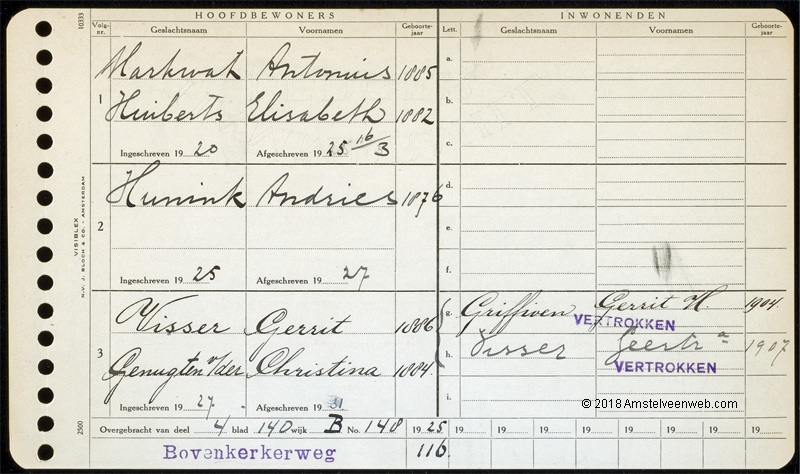 HOOFDBEWONERS INWONENDEN
Volg-nr. Geslachtsnaam Voornamen Geboorte-jaar Lett. Geslachtsnaam Voornamen Geboorte-jaar
Markwat Antonius 1885 a.
1 Huiberts Elisabeth 1882 b.
Ingeschreven 19 20 Afgeschreven 19 25 16/3 c.
Hunink Andries 1876 d.
2 e.
Ingeschreven 19 25 Afgeschreven 19 27 f.
Visser Gerrit 1886 g. Griffioen Gerrit H. 1904.
VERTROKKEN
3 Genugten v/der Christina 1884. h. Visser Geertr a 1907
VERTROKKEN
Ingeschreven 19 27 - Afgeschreven 19 31 i.
Overgebracht van deel 4 blad 140 wijk B No. 148 19 25 19 19 19 19 19 19 19
Bovenkerkerweg 116.
10333
VISIBLEX
N.V. J. BLOCH & CO. - AMSTERDAM
2500
© 2018 Amstelveenweb.com